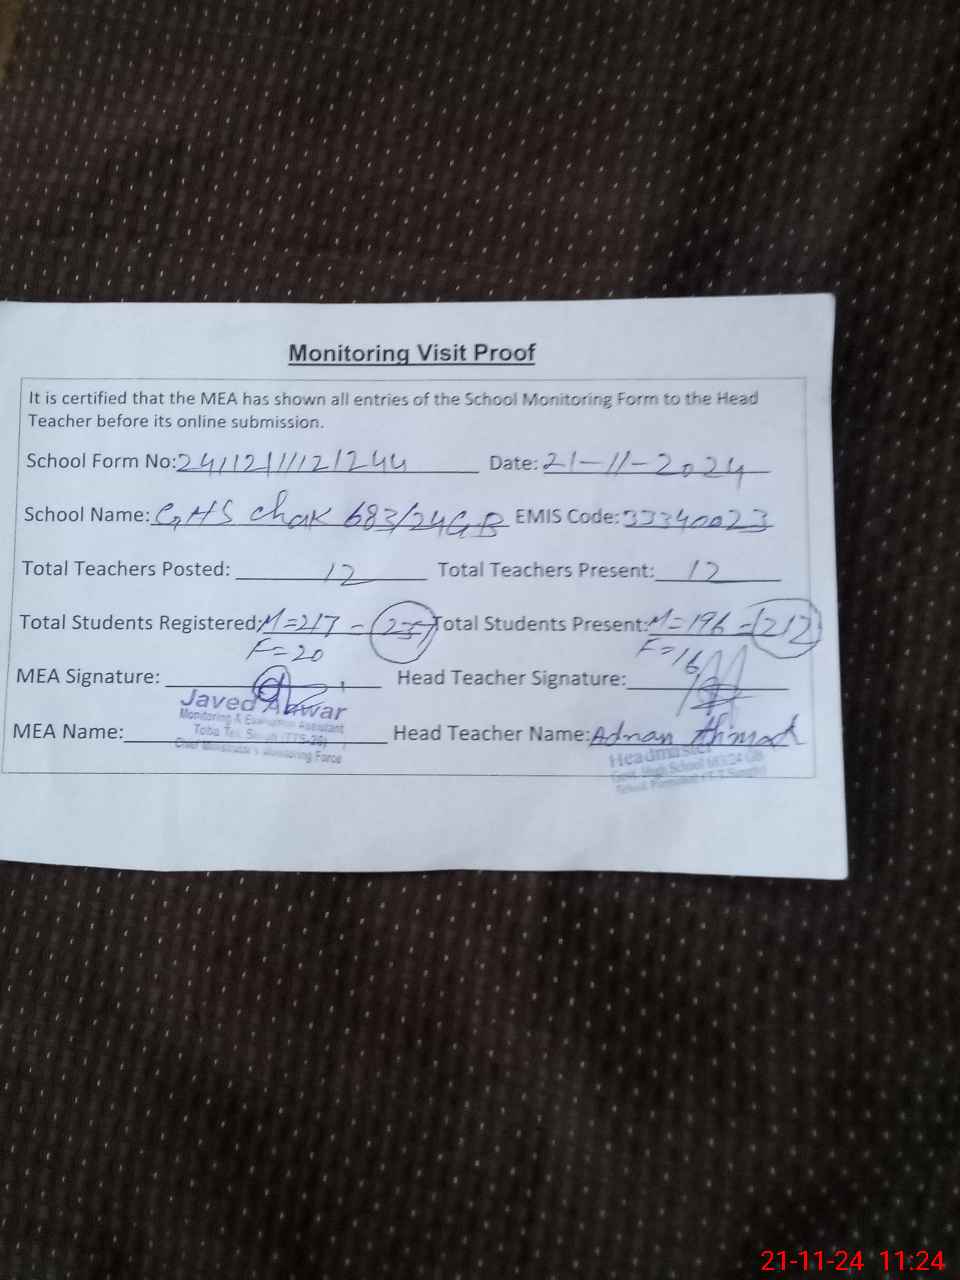 Monitoring Visit Proof
It is certified that the MEA has shown all entries of the School Monitoring Form to the Head
Teacher before its online submission.
School Form No: Date: 21-11-2024
School Name: GHS Chak 683/24GB EMIS Code: 33340023
Total Teachers Posted: 12 Total Teachers Present: 12
Total Students Registered: M=217 - 237 Total Students Present: M=196 - 212
F=20 F=16
MEA Signature: Head Teacher Signature:
Javed Anwar
Monitoring & Evaluation Assistant
MEA Name: Head Teacher Name: Adnan Ahmad
Toba Tek Singh (TTS-26)
Chief Minister's Monitoring Force
Headmaster
Govt. High School 683/24 GB
21-11-24 11:24